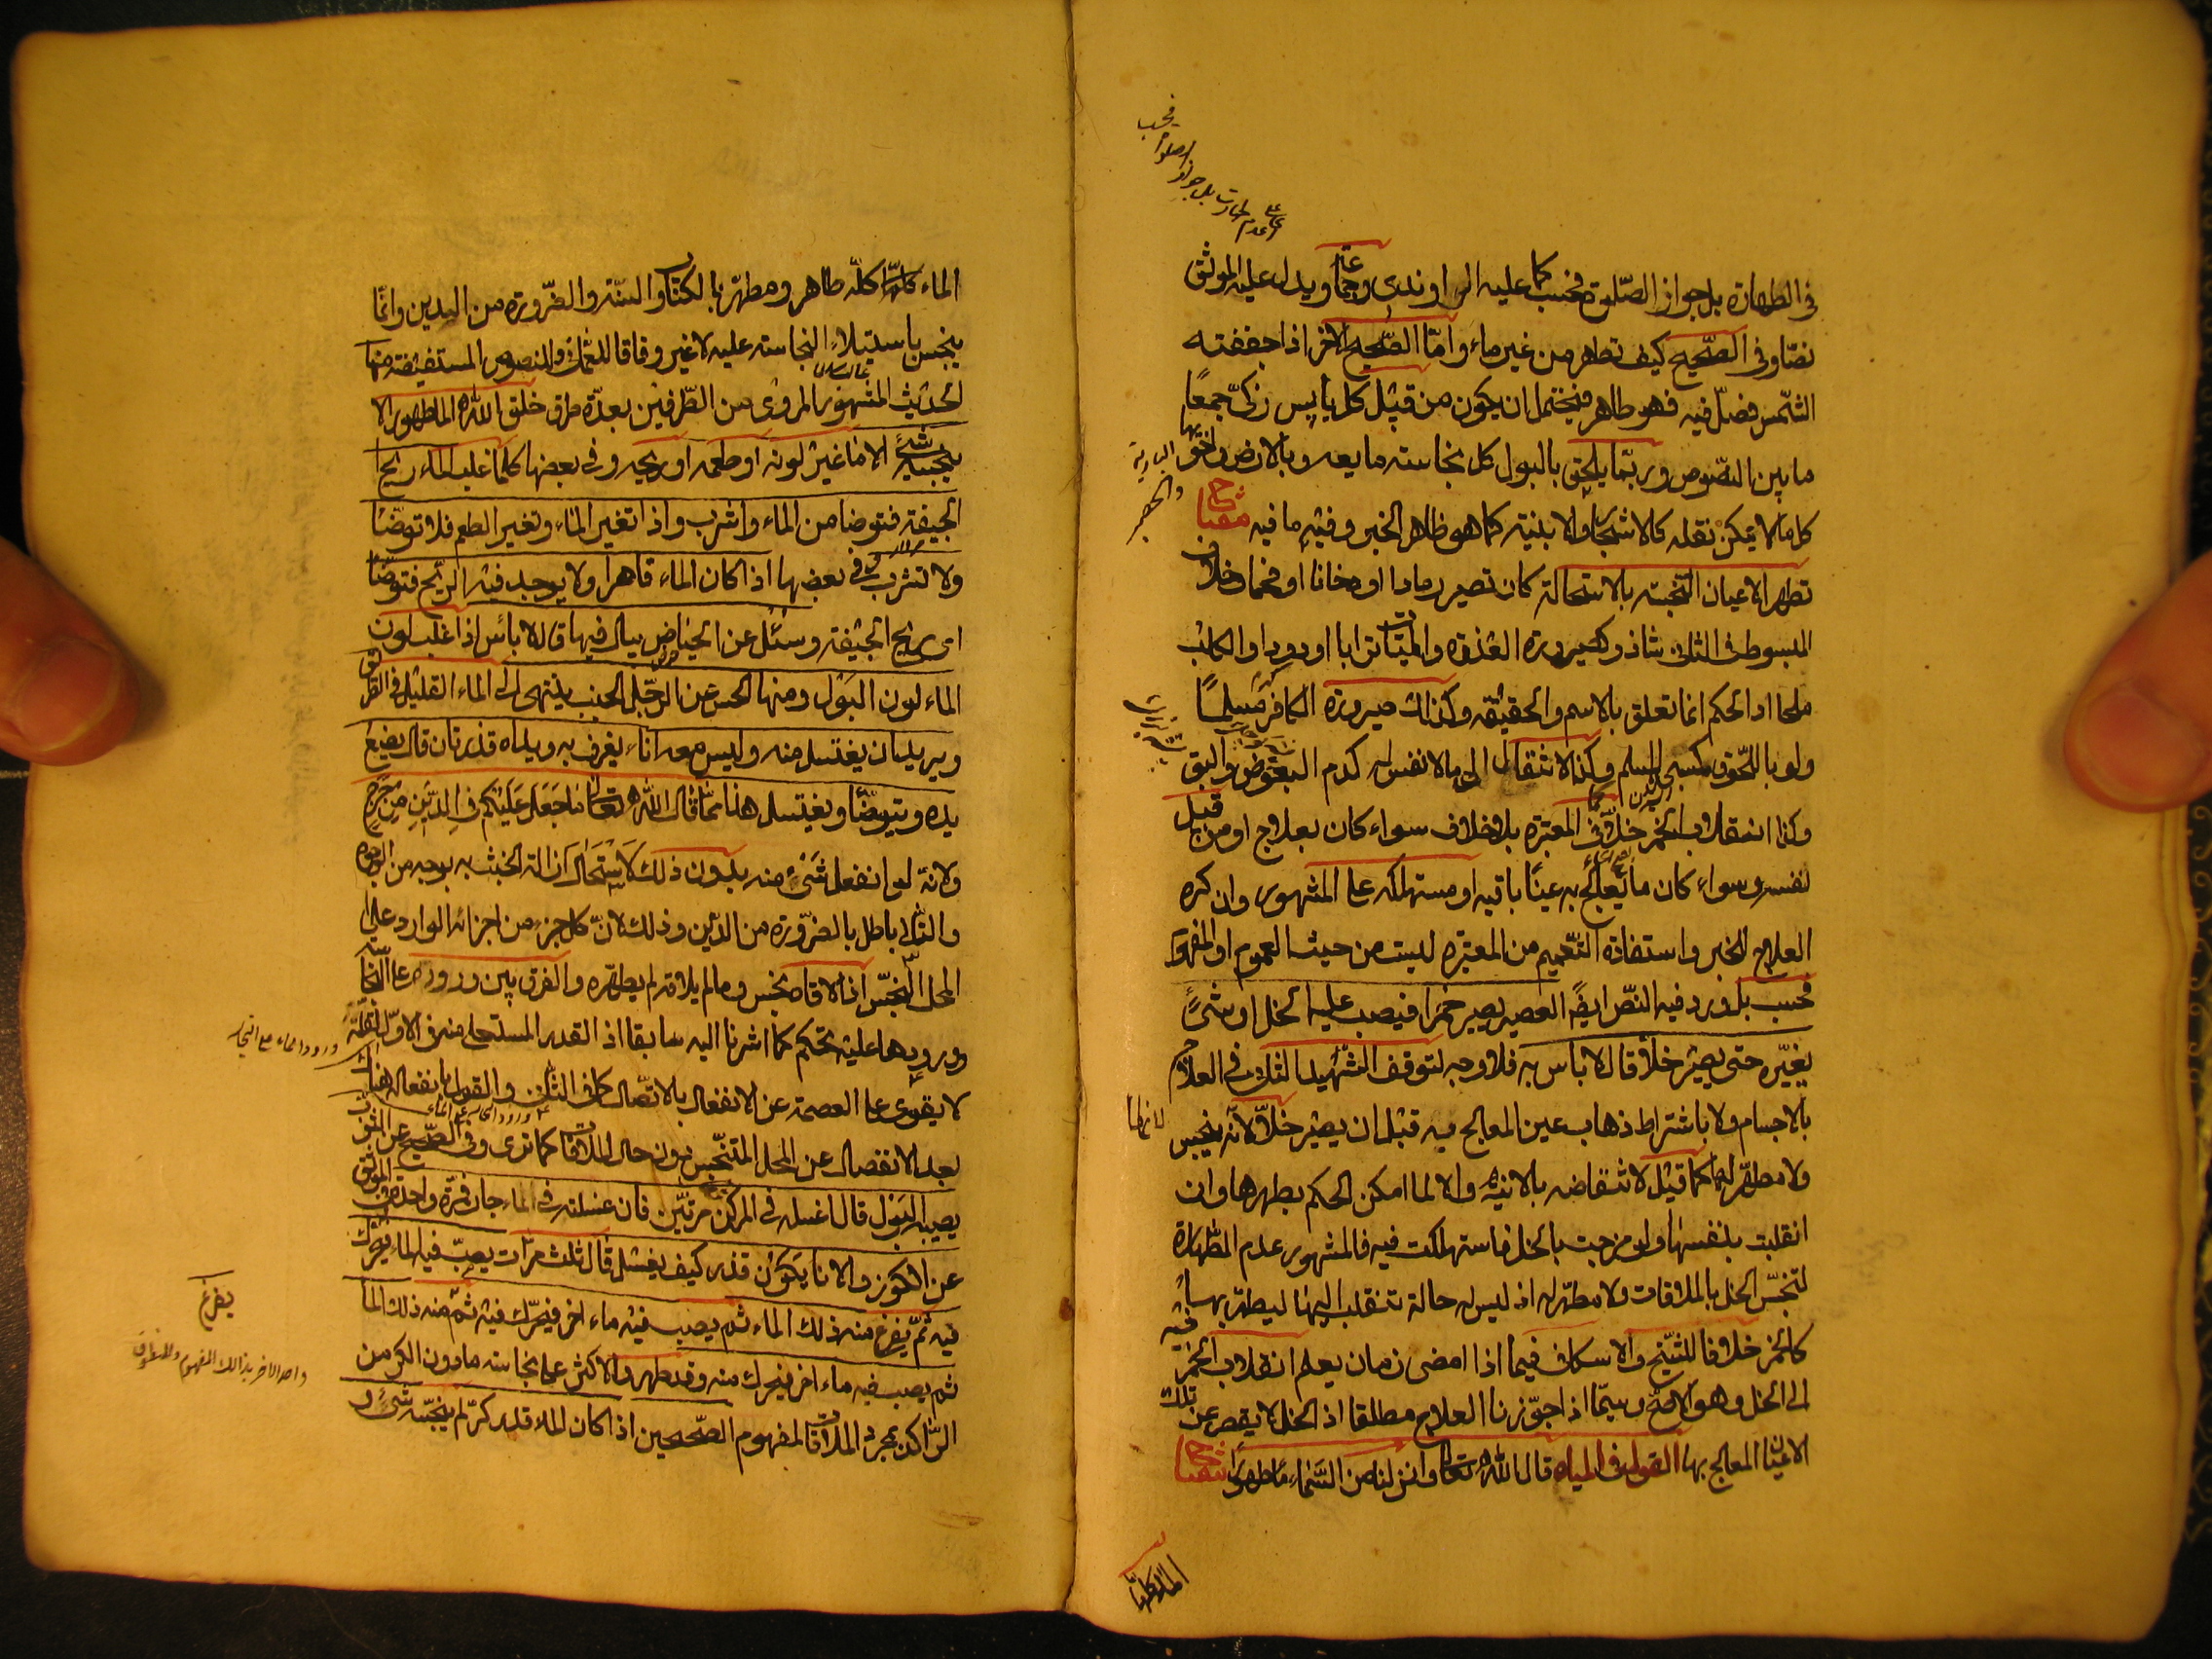 في الطهارة بل جواز الصلوة فحسب كما عليه الراوندي وجماعة ويدل عليه الموثق
نصا وفي الصحيح كيف تطهر من غير ماء واما الصحيح الاخر اذا جففته
الشمس فصل فيه فهو طاهر فيحتمل ان يكون من قبيل كل يابس زكي جمعا
ما بين النصوص وربما يلحق بالبول كل نجاسة مايعه وبالارض واختيها
البارية
والحصر
كل ما لا يمكن نقله كالاشجار والابنية كما هو ظاهر الخبر وفيه ما فيه مفتاح
تطهر الاعيان النجسة بالاستحالة كان تصير رمادا او دخانا او فحما وخلاف
المبسوط في الثاني شاذ وكصيرورة العذرة والميتات ترابا او دودا والكلب
ملحا اذ الحكم انما تعلق بالاسم والحقيقة وكذلك صيرورة الكافر مسلما
ولو باللحوق كمسبي المسلم وكذا الانتقال الى ما لا نفس له كدم البعوض والبق
وكذا انقلاب الخمر خلا كما في المعتبرة بلا خلاف سواء كان بعلاج او من قبل
نفسه وسواء كان ما يعالج به عينا باقية او مستهلكة على المشهور وان كره
العلاج للخبر واستفادة التعميم من المعتبرة ليست من حيث العموم او المفهوم
فحسب بل ورد فيه النص ايضا العصير يصير خمرا فيصب عليه الخل او شيء
يغيره حتى يصير خلا قال لا باس به فلا وجه لتوقف الشهيد الثاني في العلاج
بالاجسام ولا باشتراط ذهاب عين المعالج به قبل ان يصير خلا لانه ينجس
ولا مطهر لها كما قيل لانتقاضه بالانية والا لما امكن الحكم بطهرها وان
انقلبت بنفسها ولو مزجت بالخل فاستهلكت فيه فالمشهور عدم الطهارة
لتنجس الخل بالملاقات ولا مطهر له اذ ليس له حالة تنقلب اليها ليطهر بها
كالخمر خلافا للشيخ والاسكافي فيما اذا امضى زمان يعلم انقلاب الخمر فيه
الى الخل وهو الاصح وسيما اذا جوزنا العلاج مطلقا اذ الخل لا يقصر عن تلك
الاعيان المعالج بها القول في المياه قال الله تعالى وانزلنا من السماء ماء طهورا مفتاح
الماء كله طاهر ومطهر بالكتاب والسنة والضرورة من الدين وانما
ينجس باستيلاء النجاسة عليه لا غير وفاقا للعماني والنصوص المستفيضة منها
الحديث المشهور المروي من الطرفين بعدة طرق خلق الله الماء طهورا لا
ينجسه شيء الا ما غير لونه او طعمه او ريحه وفي بعضها كلما غلب الماء ريح
الجيفة فتوضا من الماء واشرب واذا تغير الماء وتغير الطعم فلا توضا
ولا تشرب وفي بعضها اذا كان الماء قاهرا ولا يوجد فيه الريح فتوضا
اي ريح الجيفة وسئل عن الحياض يبال فيها قال لا باس اذا غلب لون
الماء لون البول ومنها الحسن عن الرجل الجنب ينتهي الى الماء القليل في الطريق
ويريد ان يغتسل منه وليس معه اناء يغرف به ويداه قذرتان قال يضع
يده ويتوضا ويغتسل هذا مما قال الله تعالى ما جعل عليكم في الدين من حرج
ولانه لو انفعل شيء منه بدون ذلك لاستحال ازالة الخبث به بوجه من الوجوه
والتالي باطل بالضرورة من الدين وذلك لان كل جزء من اجزائه الوارد على
المحل النجس اذا لاقاه نجس وما لم يلاقه لم يطهره والفرق بين وروده على النجاسة
وورودها عليه تحكم كما اشرنا اليه سابقا اذ القدر المستعلي منه في الاول لقلته
ورود الماء على النجاسة
لا يقوى على العصمة عن الانفعال بالاتصال كما في الثاني والقول بانفعاله هناك
بعد الانفصال عن المحل المتنجس دون حال الملاقات كما ترى وفي الصحيح عن الثوب
يصيبه البول قال اغسله في المركن مرتين فان غسلته في الماء جار فمرة واحدة وفي الموثق
عن الكوز والانا يكون قذر كيف يغسل قال ثلث مرات يصب فيه الماء فيحرك
فيه ثم يفرغ منه ذلك الماء ثم يصب فيه ماء اخر فيحرك فيه ثم منه ذلك الماء
يفرغ
ثم يصب فيه ماء اخر فيحرك منه وقد طهر والاكثر على نجاسة ما دون الكر من
الراكد بمجرد الملاقات لمفهوم الصحيحين اذا كان الماء قدر كر لم ينجسه شيء و